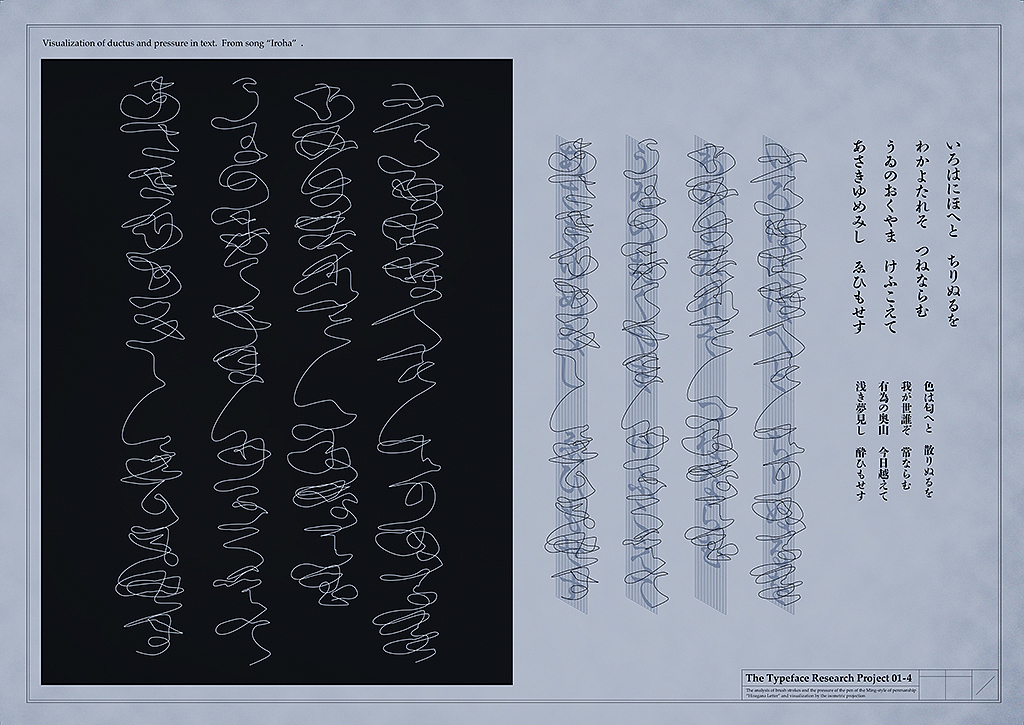 Visualization of ductus and pressure in text. From song “Iroha” .
いろはにほへと ちりぬるを
わかよたれそ つねならむ
うゐのおくやま けふこえて
あさきゆめみし ゑひもせす
色は匂へと 散りぬるを
我が世誰ぞ 常ならむ
有為の奥山 今日越えて
浅き夢見し 酔ひもせす
The Typeface Research Project 01-4
The analysis of brush strokes and the pressure of the pen of the Ming style of penmanship
and visualization by the isometric projection